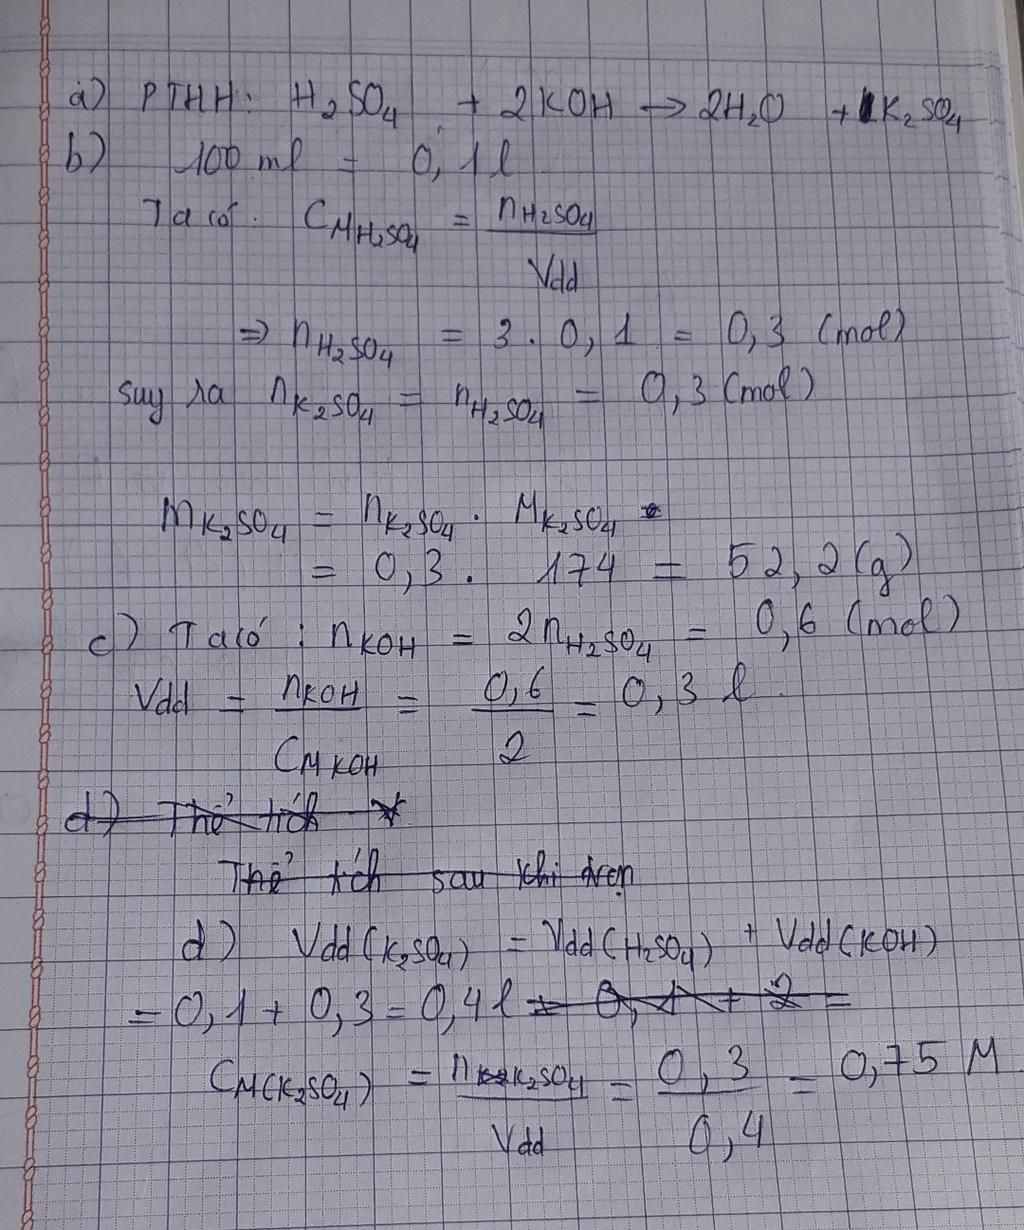 a) PTHH: H₂SO₄ + 2KOH → 2H₂O + K₂SO₄
b) 100 ml = 0,1l
Ta có: CMH₂SO₄ = nH₂SO₄ / Vdd
⇒ nH₂SO₄ = 3 . 0,1 = 0,3 (mol)
suy ra nK₂SO₄ = nH₂SO₄ = 0,3 (mol)
mK₂SO₄ = nK₂SO₄ . MK₂SO₄ =
= 0,3 . 174 = 52,2 (g)
c) Ta có : nKOH = 2nH₂SO₄ = 0,6 (mol)
Vdd = nKOH / CMKOH = 0,6 / 2 = 0,3 l
d) Thể tích
Thể tích sau khi trộn
d) Vdd(K₂SO₄) = Vdd(H₂SO₄) + Vdd(KOH)
= 0,1 + 0,3 = 0,4l = 0,1 + 2 =
CM(K₂SO₄) = nK₂SO₄ / Vdd = 0,3 / 0,4 = 0,75 M